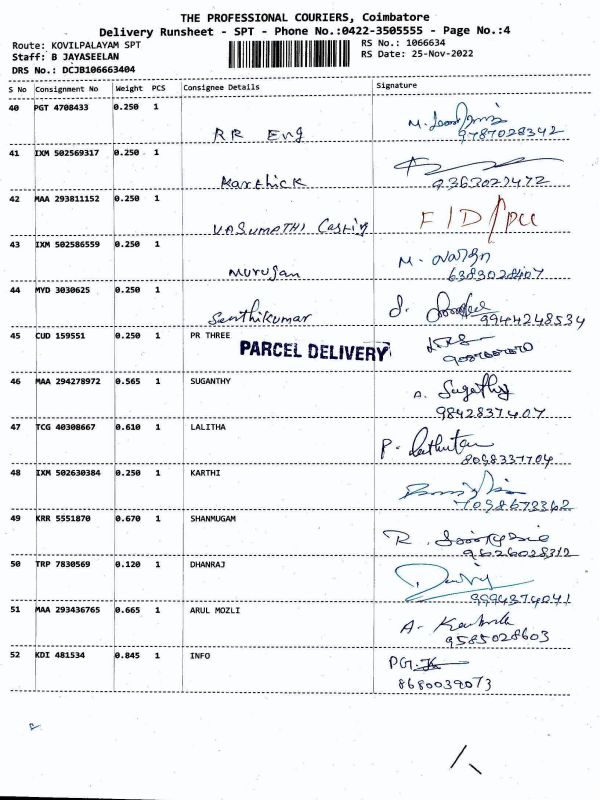 THE PROFESSIONAL COURIERS, Coimbatore
Delivery Runsheet - SPT - Phone No.:0422-3505555 - Page No.:4
Route: KOVILPALAYAM SPT
Staff: B JAYASEELAN
DRS No.: DCJB106663404
RS No.: 1066634
RS Date: 25-Nov-2022
S No Consignment No Weight PCS Consignee Details Signature
40 PGT 4708433 0.250 1
RR Eng
9787028342
41 IXM 502569317 0.250 1
Karthick
9363027472
42 MAA 293811152 0.250 1
VASUMATHI Casting
F/D/PCC
43 IXM 502586559 0.250 1
Murugan
6383028407
44 MYD 3030625 0.250 1
Senthikumar
9944248534
45 CUD 159551 0.250 1 PR THREE
PARCEL DELIVERY
46 MAA 294278972 0.565 1 SUGANTHY
A. Sugathy
9842837407
47 TCG 40308667 0.610 1 LALITHA
8098337704
48 IXM 502630384 0.250 1 KARTHI
7098673362
49 KRR 5551870 0.670 1 SHANMUGAM
9626028312
50 TRP 7830569 0.120 1 DHANRAJ
9994374041
51 MAA 293436765 0.665 1 ARUL MOZLI
9585028603
52 KDI 481534 0.845 1 INFO
8680039073